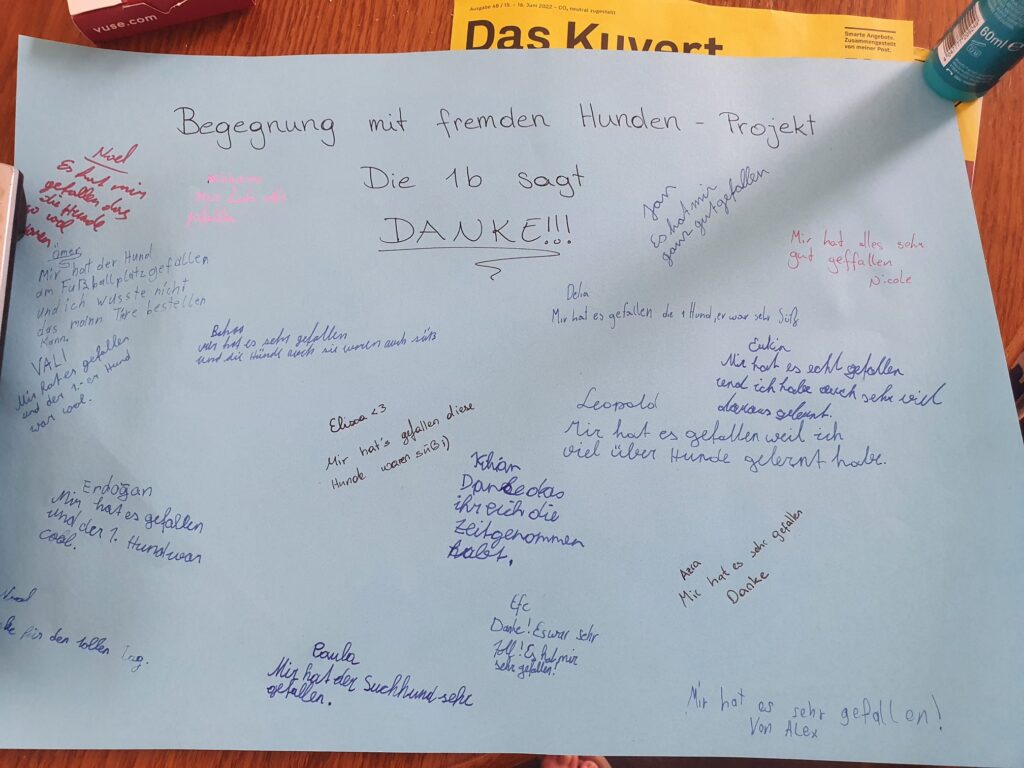 vuse.com
Ausgabe 48 / 15. - 16. Juni 2022 - CO₂ neutral zugestellt
Das Kuvert
Smarte Angebote.
Zusammengestellt
von meiner Post.
60ml e
Begegnung mit fremden Hunden - Projekt
Die 1b sagt
DANKE!!!
Noel
Es hat mir
gefallen das
die Hunde
so cool
waren
Jan
Es hat mir
ganz gut gefallen
Mir hat alles sehr
gut geffallen
Nicole
ömer
Mir hat der Hund
am Fußballplatz gefallen
und ich wusste nicht
das mann Tire bestellen
kann.
Delia
Mir hat es gefallen de 1 Hund, er war sehr Süß
hat es sehr gefallen
und die Hünde auch sie waren auch süß
VALI
Mir hat es gefallen
und der 1.-er Hund
war cool.
Mir hat es echt gefallen
und ich habe auch sehr viel
daraus gelernt.
Elissa <3
Mir hat's gefallen diese
Hunde waren süß :)
Leopold
Mir hat es gefallen weil ich
viel über Hunde gelernt habe.
Kilián
Danke das
ihr eich die
Zeit genommen
habt.
Erdoğan
Mir hat es gefallen
und der 1. Hund war
cool.
Azra
Mir hat es sehr gefallen
Danke
für den tollen Tag.
Efe
Danke! Es war sehr
Toll! Es hat mir
sehr gefallen!
Paula
Mir hat der Suchhund sehr
gefallen.
Mir hat es sehr gefallen!
Von Alex